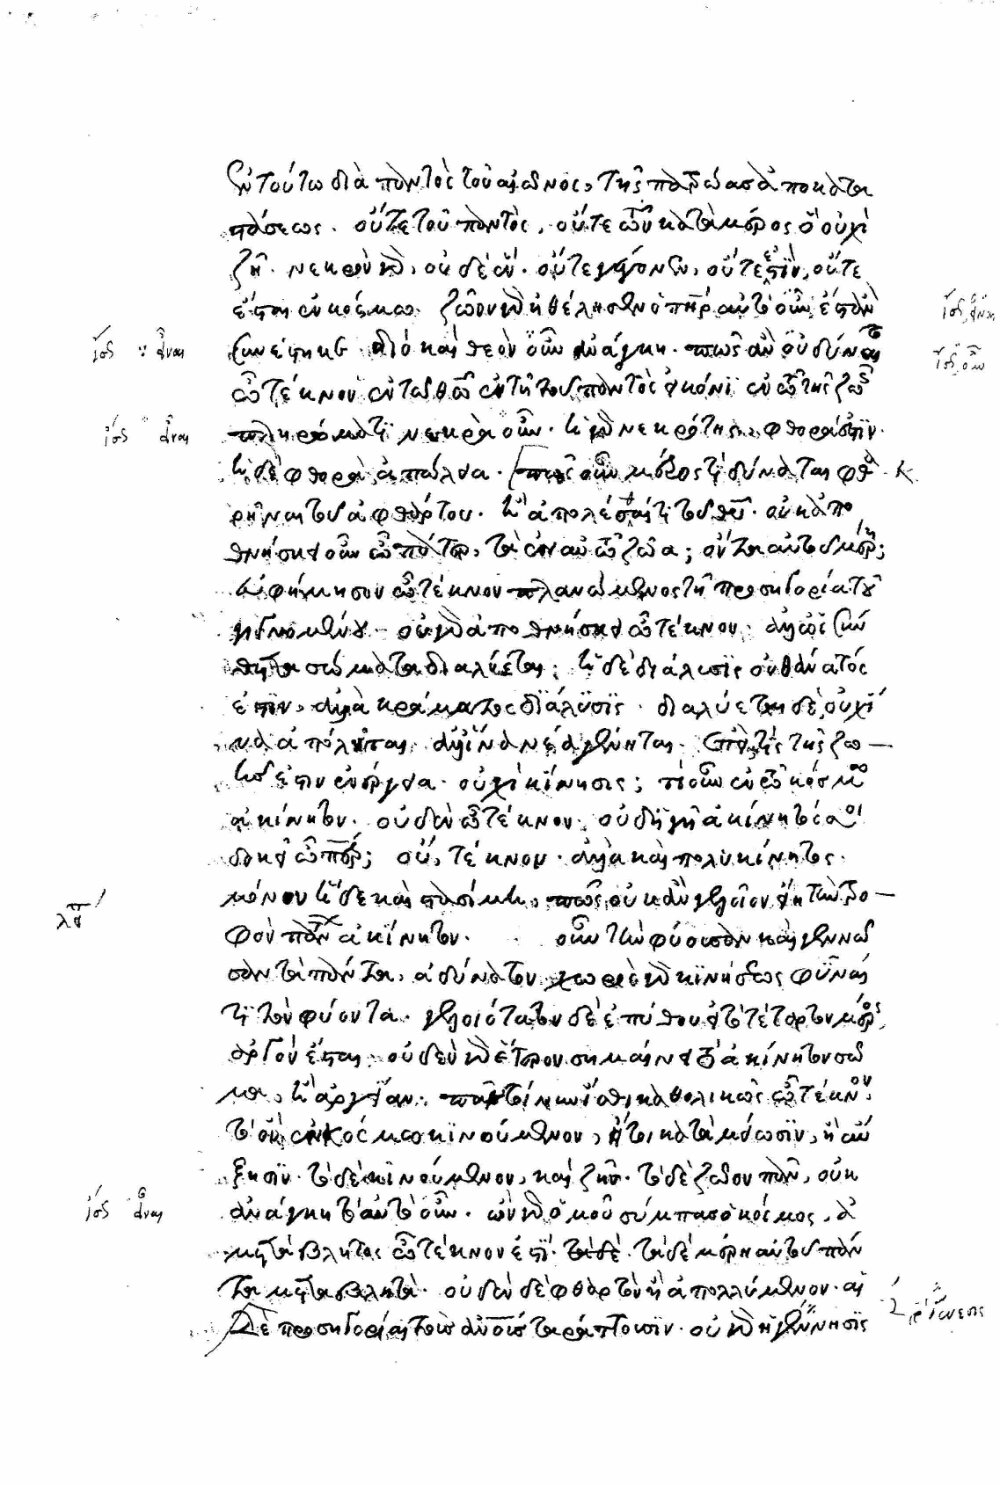 ἐν τούτω διὰ παντὸς τοῦ αἰῶνος, τῆς πατρώας ἀποκατα
στάσεως. οὔτε τοῦ παντὸς, οὔτε τῶν κατὰ μέρος ὃ οὐχὶ
ζῆ. νεκρὸν γὰρ, οὐδὲ ἕν. οὔτε γέγονεν, οὔτε ἔστιν, οὔτε
ἔσται ἐν κόσμω. ζῶον γὰρ ἠθέλησεν ὁ πατὴρ αὐτὸ εἶναι ἔστ' ἂν
συνεστήκη. διὸ καὶ θεὸν εἶναι ἀνάγκη. πῶς ἂν οὖν δύναιτο
ὦ τέκνον ἐν τῶ θεῶ ἐν τῆ τοῦ παντὸς εἰκόνι ἐν τῶ τῆς ζωῆς
πληρώματι νεκρὰ εἶναι. ἡ γὰρ νεκρότης, φθορά ἐστιν.
ἡ δὲ φθορὰ ἀπώλεια. πῶς οὖν μέρος τι δύναται φθα
ρῆναι τοῦ ἀφθάρτου. ἢ ἀπολέσθαι τι τοῦ θεοῦ. οὐκ ἀπο
θνήσκει οὖν ὦ πάτερ, τὰ ἐν αὐτῶ ζῶα; ὄντα αὐτοῦ μέρη;
εὐφήμησον ὦ τέκνον πλανώμενος τῆ προσηγορία τοῦ
γινομένου. οὐ γὰρ ἀποθνήσκει ὦ τέκνον. ἀλλ' ὡς σύν
θετα σώματα διαλύεται; ἡ δὲ διάλυσις οὐ θάνατός
ἐστιν, ἀλλὰ κράματος διάλυσις. διαλύεται δὲ οὐχ ἵ
να ἀπόληται, ἀλλ' ἵνα νέα γένηται. ἐπεὶ τίς τῆς ζω
ῆς ἐστιν ἐνέργεια. οὐχὶ κίνησις; τί οὖν ἐν τῶ κόσμω
ἀκίνητον. οὐδὲν ὦ τέκνον. οὐδ' ἡ γῆ ἀκίνητός σοι
δοκεῖ ὦ πάτερ; οὔ, τέκνον. ἀλλὰ καὶ πολυκίνητος.
μόνον ἥδε καὶ στασίμη, πῶς οὐκ ἂν γελοῖον εἴη τὴν τρο
φὸν πάντων ἀκίνητον. εἶναι τὴν φύουσαν καὶ γεννῶ
σαν τὰ πάντα. ἀδύνατον χωρὶς γὰρ κινήσεως φῦναί
τι τὸν φύοντα. γελοιότατον δὲ ἐπύθου εἰ τὸ τέταρτον μέρος
ἀργὸν ἔσται. οὐδὲν γὰρ ἕτερον σημαίνει τὸ ἀκίνητον σῶ
μα, ἢ ἀργίαν. πᾶν τοίνυν ἴσθι καθολικῶς ὦ τέκνον.
τὸ ὂν ἐν κόσμω κινούμενον, ἤτοι κατὰ μείωσιν, ἢ αὔ
ξησιν. τὸ δὲ κινούμενον, καὶ ζῆ. τὸ δὲ ζῶον πᾶν, οὐκ
ἀνάγκη τὸ αὐτὸ εἶναι. ὢν γὰρ ὁμοῦ σύμπας ὁ κόσμος, ἀ
μετάβλητος ὦ τέκνον ἐστὶ. τὰ δὲ μέρη αὐτοῦ πάν
τα μεταβλητὰ. οὐδὲν δὲ φθαρτὸν ἢ ἀπολλύμενον. αἱ
δὲ προσηγορίαι τοὺς ἀνθρώπους ταράττουσιν. οὐ γὰρ ἡ γέννησίς